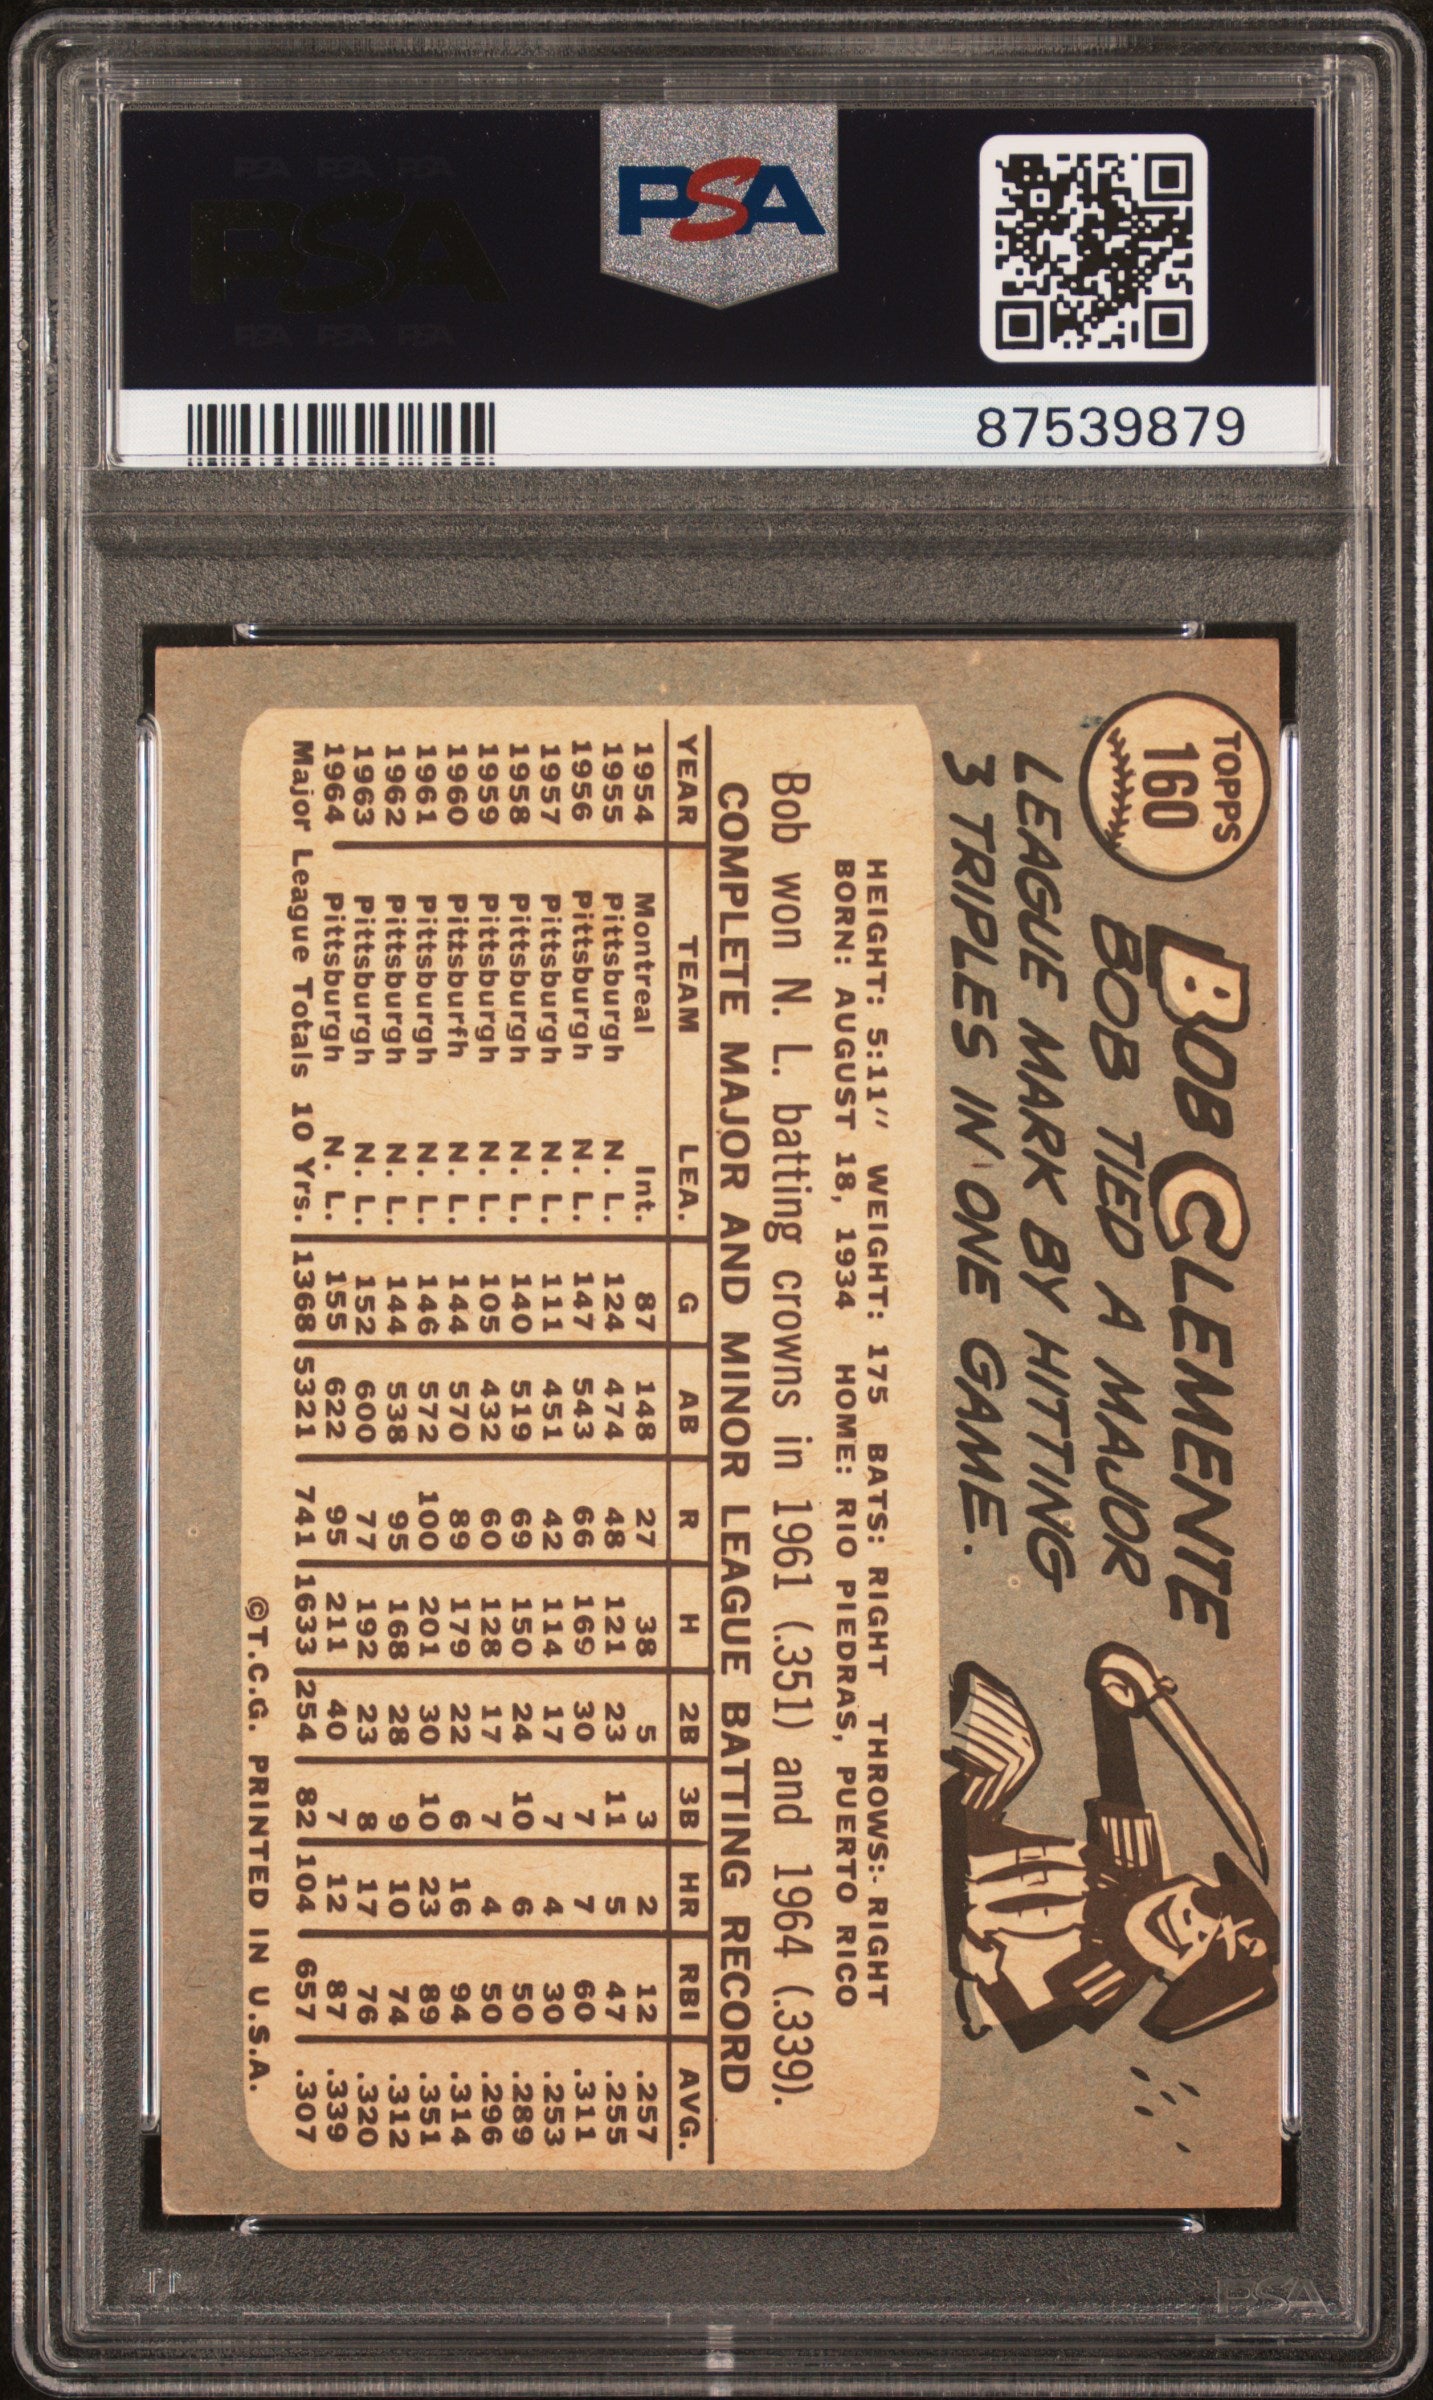 PSA PSA PSA
PSA
PSA PSA PSA
PSA
87539879
TOPPS
160
BOB CLEMENTE
BOB TIED A MAJOR
LEAGUE MARK BY HITTING
3 TRIPLES IN ONE GAME.
HEIGHT: 5:11″ WEIGHT: 175 BATS: RIGHT THROWS: RIGHT
BORN: AUGUST 18, 1934 HOME: RIO PIEDRAS, PUERTO RICO
Bob won N. L. batting crowns in 1961 (.351) and 1964 (.339).
COMPLETE MAJOR AND MINOR LEAGUE BATTING RECORD
YEAR TEAM LEA. G AB R H 2B 3B HR RBI AVG.
1954 Montreal Int. 87 148 27 38 5 3 2 12 .257
1955 Pittsburgh N. L. 124 474 48 121 23 11 5 47 .255
1956 Pittsburgh N. L. 147 543 66 169 30 7 7 60 .311
1957 Pittsburgh N. L. 111 451 42 114 17 7 4 30 .253
1958 Pittsburgh N. L. 140 519 69 150 24 10 6 50 .289
1959 Pittsburgh N. L. 105 432 60 128 17 7 4 50 .296
1960 Pittsburfh N. L. 144 570 89 179 22 6 16 94 .314
1961 Pittsburgh N. L. 146 572 100 201 30 10 23 89 .351
1962 Pittsburgh N. L. 144 538 95 168 28 9 10 74 .312
1963 Pittsburgh N. L. 152 600 77 192 23 8 17 76 .320
1964 Pittsburgh N. L. 155 622 95 211 40 7 12 87 .339
Major League Totals 10 Yrs. 1368 5321 741 1633 254 82 104 657 .307
©T.C.G. PRINTED IN U.S.A.
PSA